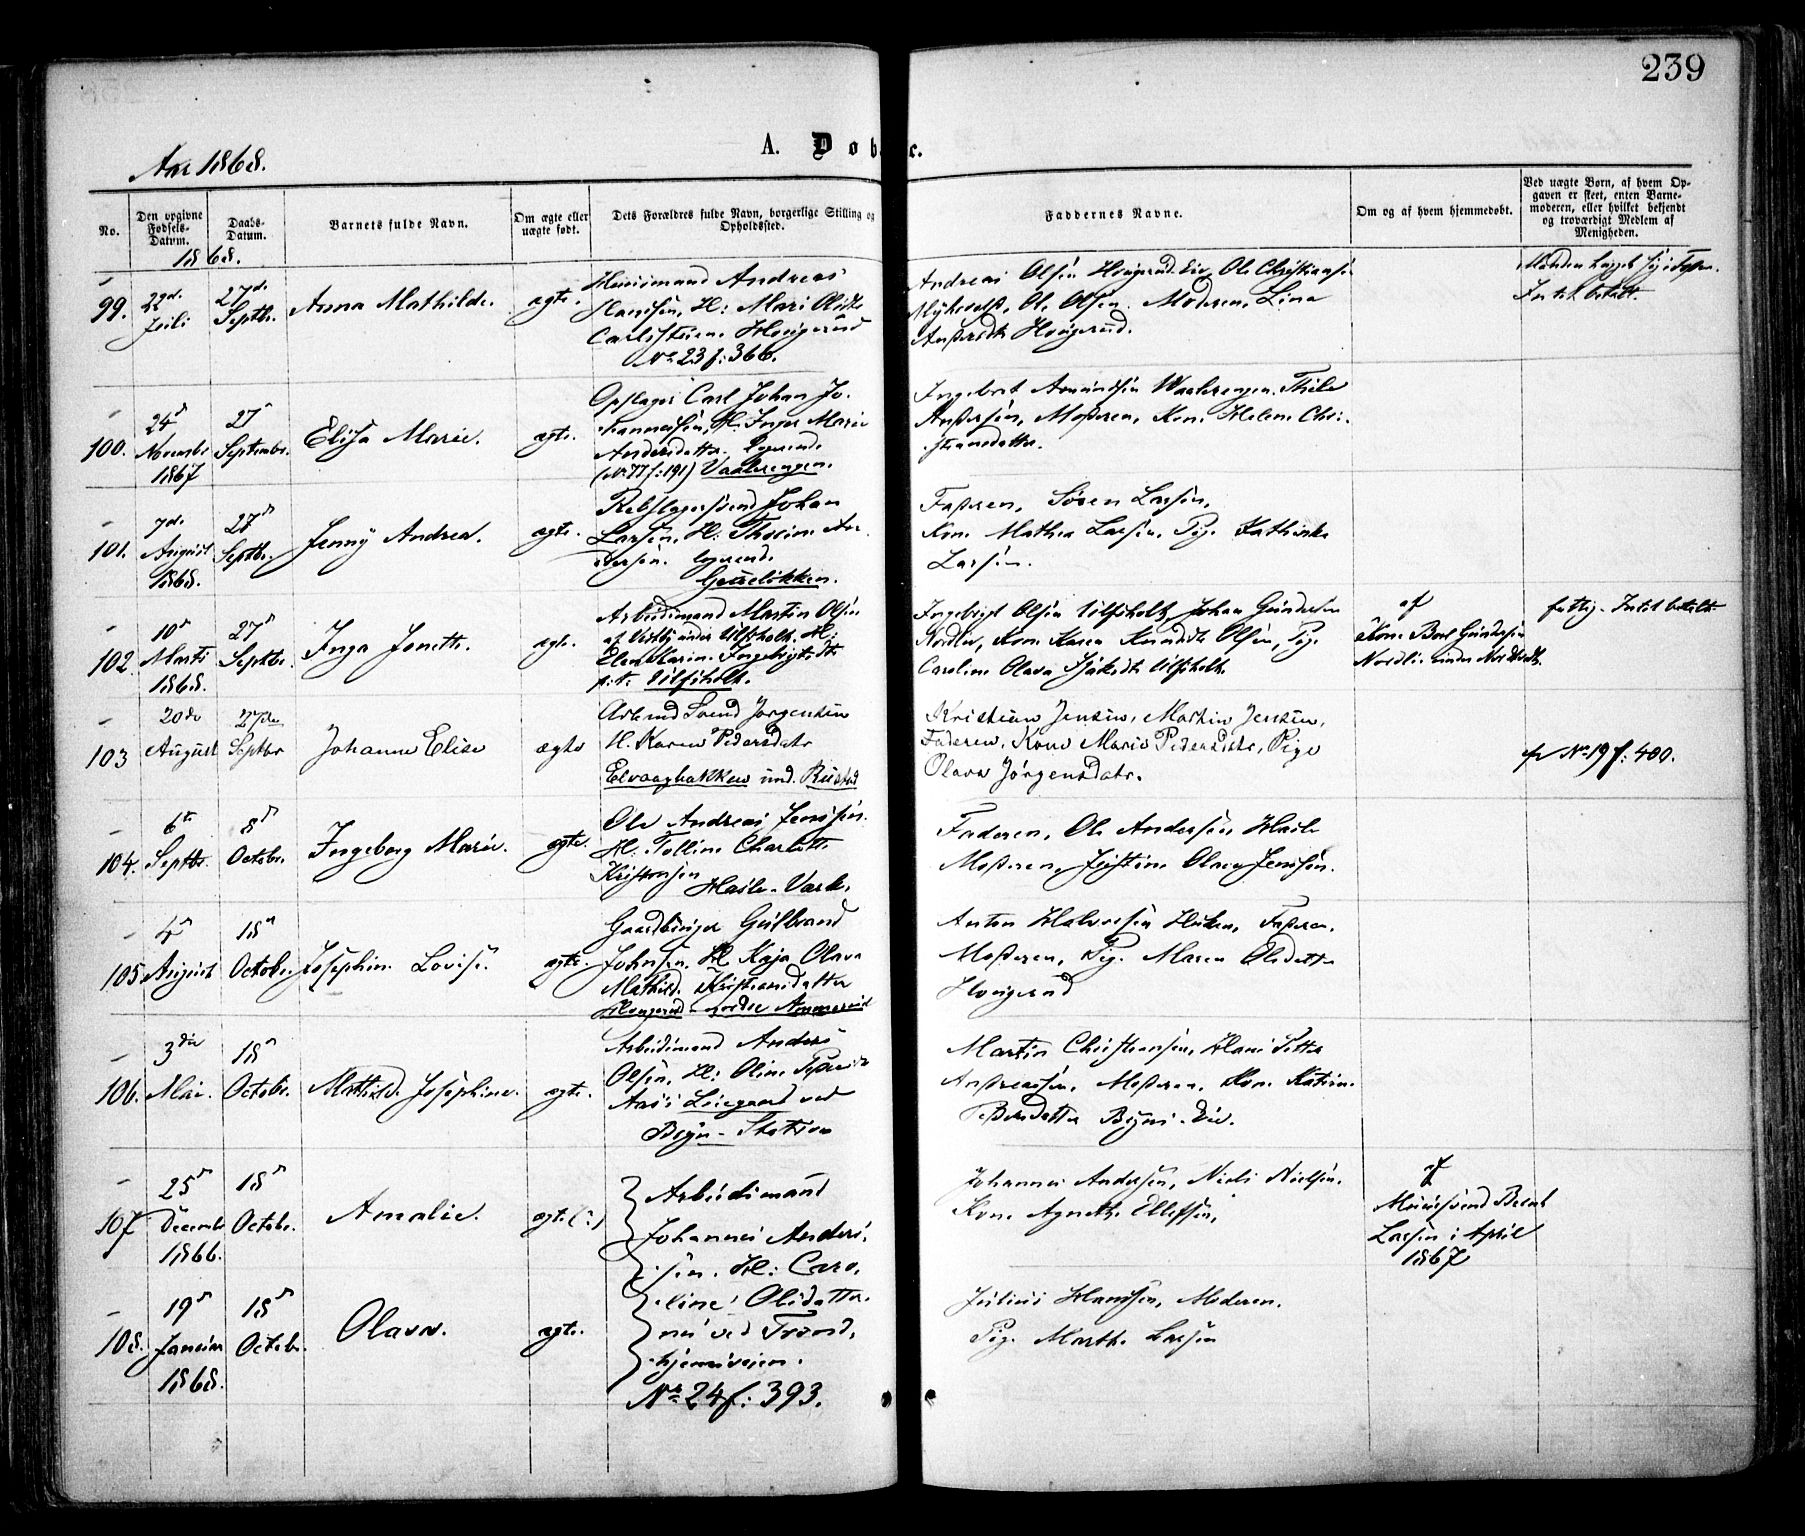 239
A. Døbte.
Aar 1868.
No.
Den opgivne Fødsels-Datum.
Daabs-Datum.
Barnets fulde Navn.
Om ægte eller uægte født.
Dets Forældres fulde Navn, borgerlige Stilling og Opholdssted.
Faddernes Navne.
Om og af hvem hjemmedøbt.
Ved uægte Børn, af hvem Op-
gaven er skeet, enten Barne-
moderen, eller hvilket bekjendt
og troværdigt Medlem af
Menigheden.
1868.
99.
22d. Juli
27d. Septbr.
Anna Mathilde.
ægte.
Huusmand Andreas
Hansen, H: Mari
Haugerud
No 23 f: 366.
Andreas Olsen Haugerud Eie, Ole Christians:
Ole Olsen. Moderen, Lina
Haugerud.
100.
24 Novembr 1867
27 Septembr.
Elisa Marie.
ægte.
Opslager Carl Johan Jo-
hannessen, H: Inger Marie
Andersdatter. logerende
(No 77 f: 191) Vaalerengen.
Ingebret Amundsen Waalerengen, Thilo
Andersen, Moderen, Kone Helene Chri-
stiansdatter.
101.
7d. August 1868.
27 Septbr.
Jenny Andrea.
ægte.
Rebslagersvend Johan
Larsen, H: An-
dersen. logerende
Faderen, Søren Larsen,
Kone Mathea Larsen, Pige Kathinka
Larsen.
102.
10d Marts 1868.
27d Septbr.
Inga Jonette.
ægte.
Arbeidsmand Martin Olsen
Ulfsholt.
Ingebrigt Olsen Ulfsholt, Johan Gundersen
Nordlie, Kone Karen Olsen, Pige
Caroline Olava Ulfsholt.
af
Kone Gundersen
Nordlie under
fattig.
103
20de August
27de Septbr
Johanne Elise
ægte
Arbmd Svend Jørgensen
H. Karen Pedersdatr
Elvaagbakken und. Rustad
Kristian Jensen, Martin Jensen,
Faderen, Kone Marie Pedersdatr, Pige
Olava Jørgensdatr.
No 19 f: 400.
104.
6te Septbr.
8d Octobr.
Ingeborg Marie.
ægte.
Ole Andreas Jenssen.
H: Charlotte
Kristensen
Faderen, Ole Andersen
Moderen, Justine Olava Jenssen.
105
4d August
18d Octobr.
Josephine Lovise.
ægte.
Gaardbruger Gulbrand
Johnsen, H Kaja Olava
Mathilde Kristiansdatter
Haugerud nordre
Anton Halvorsen Faderen,
Moderen, Pige Maren Olsdatter
Haugerud
106.
3die Mai.
18d Octobr.
Mathilde Josephine.
ægte.
Arbeidsmand Anders
Olsen, H: Oline
ved
Bryn-Station
Martin Christiansen, Hans Petter
Andreassen, Moderen, Kone Katrine
Pedersdatter Bryns-Eie.
107
25d Decembr 1866.
18d Octobr.
Amalie.
ægte.(:)
Arbeidsmand
Johannes Anders-
sen. H: Caro-
line Olsdatter.
ved Trond-
hjemsveien.
No 24 f: 393.
Johannes Andersen, Niels Nielsen.
Kone Agnethe Ellefsen,
af
Muursvend Bernt
Larsen i April
1867
108.
19d Januar 1868.
18d Octobr.
Olava.
ægte.
Julius Hansen, Moderen.
Pige Marthe Larsen